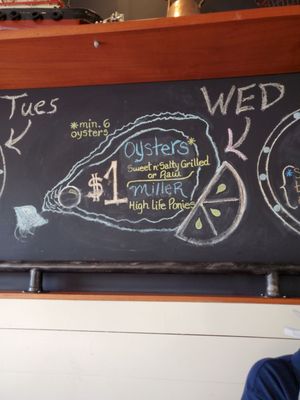 Tues
WED
*min. 6
oysters
oysters*
Sweet n' Salty Grilled
or Raw
$1
Miller
High Life Ponies